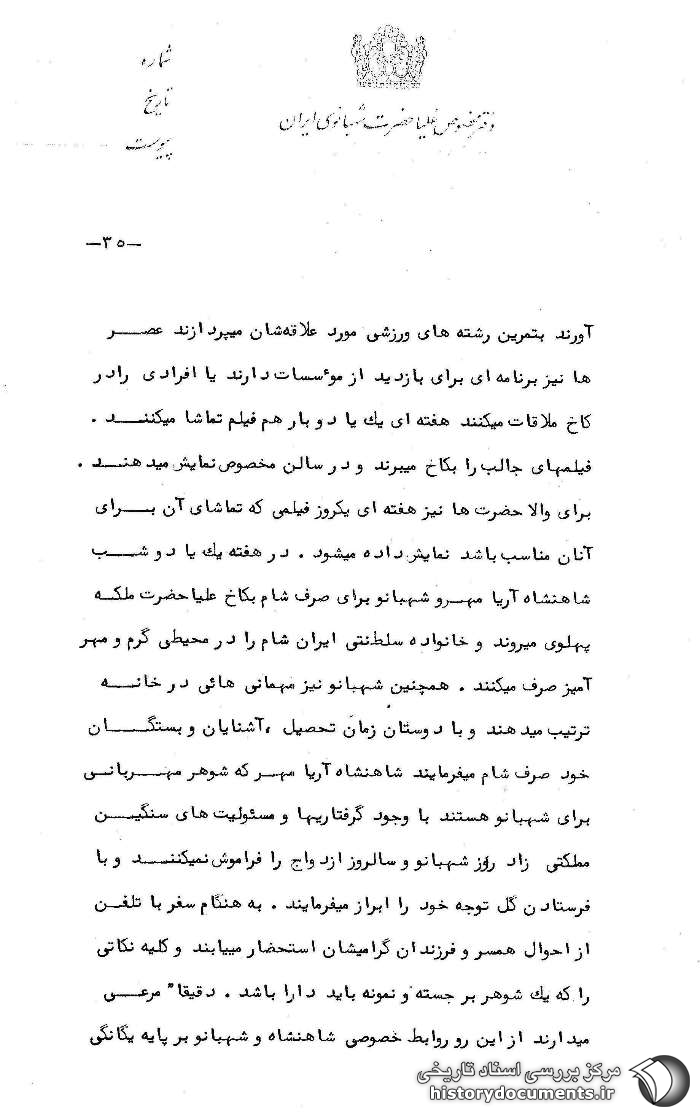 شماره
تاریخ
پیوست
دفتر مخصوص علیاحضرت شهبانوی ایران
-۳۵-
آورند بتمرین رشته های ورزشی مورد علاقه‌شان میپردازند عصر
ها نیز برنامه ای برای بازدید از موٴسسات دارند یا افرادی رادر
کاخ ملاقات میکنند هفته ای یك یا دو بار هم فیلم تماشا میکنند .
فیلمهای جالب را بکاخ میبرند و در سالن مخصوص نمایش میدهند .
برای والا حضرت ها نیز هفته ای یکروز فیلمی که تماشای آن برای
آنان مناسب باشد نمایش داده میشود . در هفته یك یا دو شب
شاهنشاه آریا مهر و شهبانو برای صرف شام بکاخ علیاحضرت ملکه
پهلوی میروند و خانواده سلطنتی ایران شام را در محیطی گرم و مهر
آمیز صرف میکنند . همچنین شهبانو نیز مهمانی هائی در خانه
ترتیب میدهند و با دوستان زمان تحصیل ، آشنایان و بستگان
خود صرف شام میفرمایند شاهنشاه آریا مهر که شوهر مهربانی
برای شهبانو هستند با وجود گرفتاریها و مسئولیت های سنگین
مملکتی زاد روز شهبانو و سالروز ازدواج را فراموش نمیکنند و با
فرستادن گل توجه خود را ابراز میفرمایند . به هنگام سفر با تلفن
از احوال همسر و فرزندان گرامیشان استحضار مییابند و کلیه نکاتی
را که یك شوهر بر جسته و نمونه باید دارا باشد . دقیقا" مرعی
میدارند از این رو روابط خصوصی شاهنشاه و شهبانو بر پایه یگانگی
مرکز بررسی اسناد تاریخی
historydocuments.ir